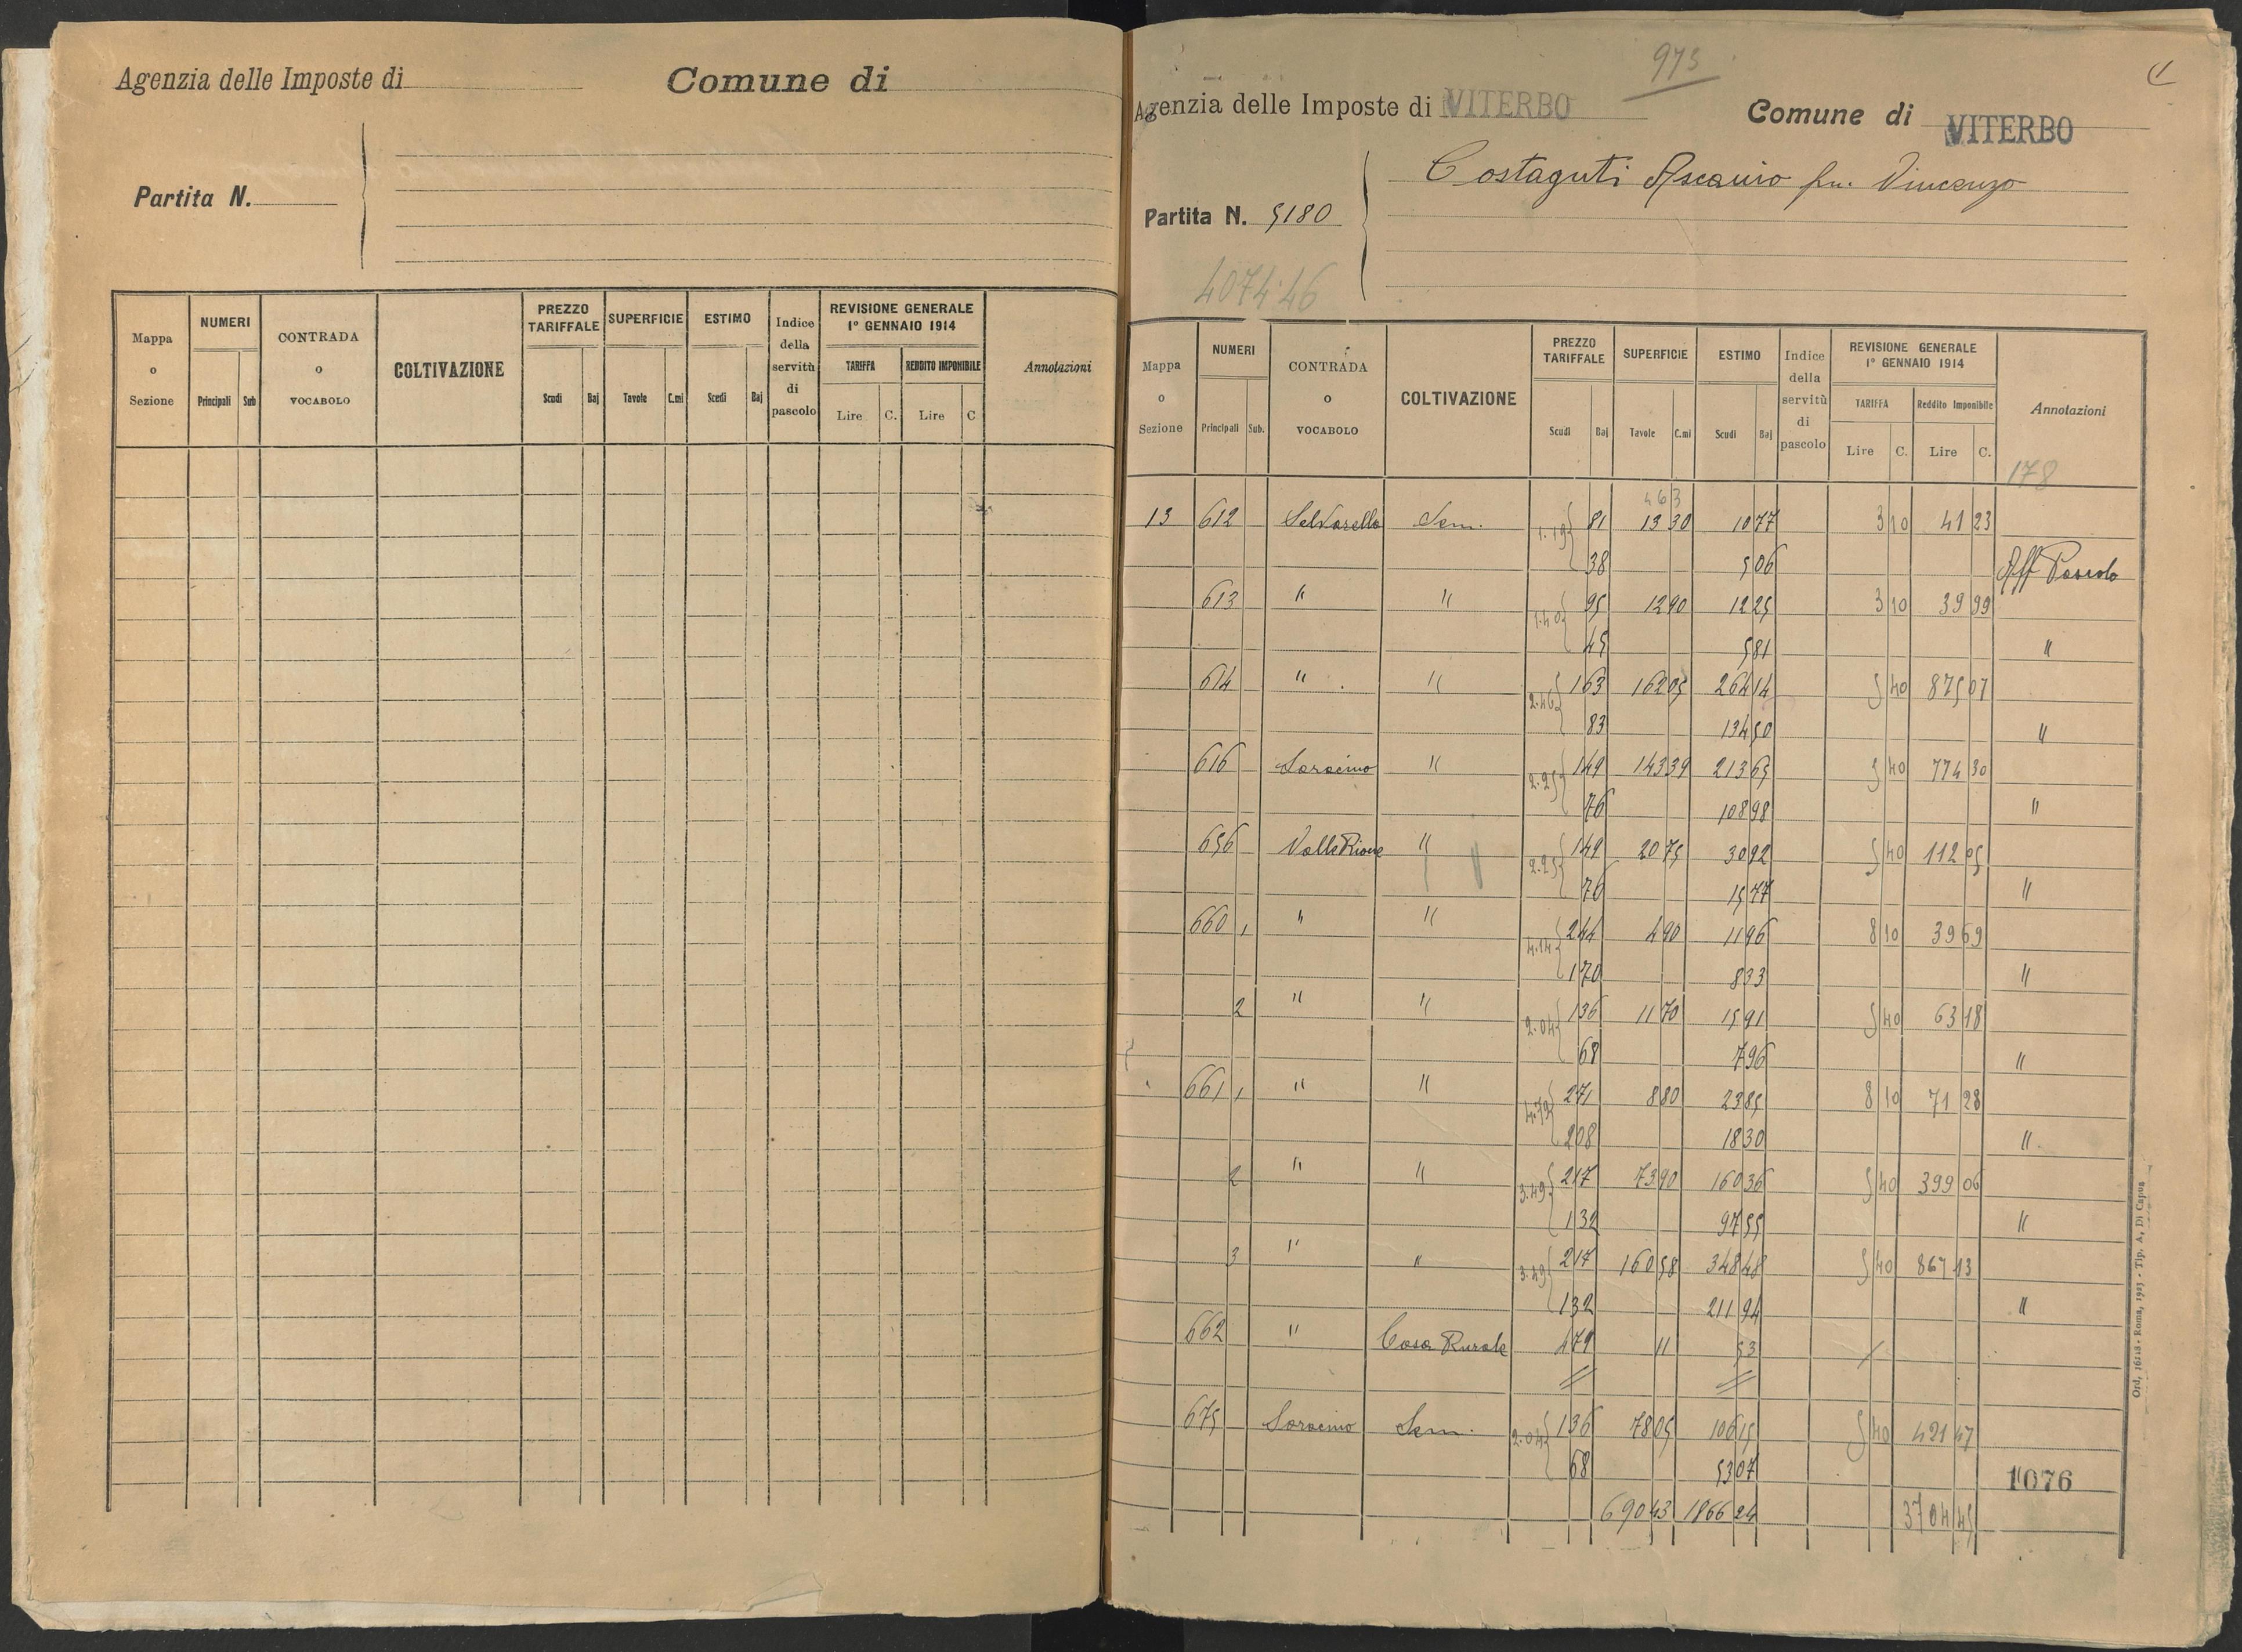 Agenzia delle Imposte di Comune di
Partita N.
Mappa o Sezione NUMERI Principali Sub CONTRADA o VOCABOLO COLTIVAZIONE PREZZO TARIFFALE Scudi Baj SUPERFICIE Tavole C.mi ESTIMO Scudi Baj Indice della servitù di pascolo REVISIONE GENERALE 1º GENNAIO 1914 TARIFFA Lire C. REDDITO IMPONIBILE Lire C Annotazioni
973
Agenzia delle Imposte di VITERBO Comune di VITERBO
Costaguti Ascanio fu. Vincenzo
Partita N. 5180
4074.46
Mappa o Sezione NUMERI Principali Sub. CONTRADA o VOCABOLO COLTIVAZIONE PREZZO TARIFFALE Scudi Baj SUPERFICIE Tavole C.mi ESTIMO Scudi Baj Indice della servitù di pascolo REVISIONE GENERALE 1º GENNAIO 1914 TARIFFA Lire C. Reddito Imponibile Lire C. Annotazioni
178
463
13 612 Selvarella Sem. 1.19 81 13 30 10 77 3 10 41 23
38 5 06 Aff Pascolo
613 " " 1.40 95 12 90 12 25 3 10 39 99
45 5 81 "
614 " " 2.46 1 63 162 05 264 14 5 40 875 07
83 134 50 "
616 Saracino " 2.25 1 49 143 39 213 65 5 40 774 30
76 108 98 "
656 Valle Rione " 2.25 1 49 20 75 30 92 5 40 112 05
76 15 77 "
660 1 " " 4.14 2 44 4 90 11 96 8 10 39 69
1 70 8 33 "
2 " " 2.04 1 36 11 70 15 91 5 40 63 18
68 7 96 "
661 1 " " 4.79 2 71 8 80 23 85 8 10 71 28
2 08 18 30 "
2 " " 3.49 2 17 73 90 160 36 5 40 399 06
1 32 97 55 "
3 " " 3.49 2 17 160 58 348 48 5 40 867 13
1 32 211 94 "
662 " Casa Rurale 4 79 11 53
675 Saracino Sem. 2.04 1 36 78 05 106 15 5 40 421 47
68 53 07 "
1076
690 43 1866 24 3704 45
Ord. 16118 - Roma, 1923 - Tip. A. Di Capua